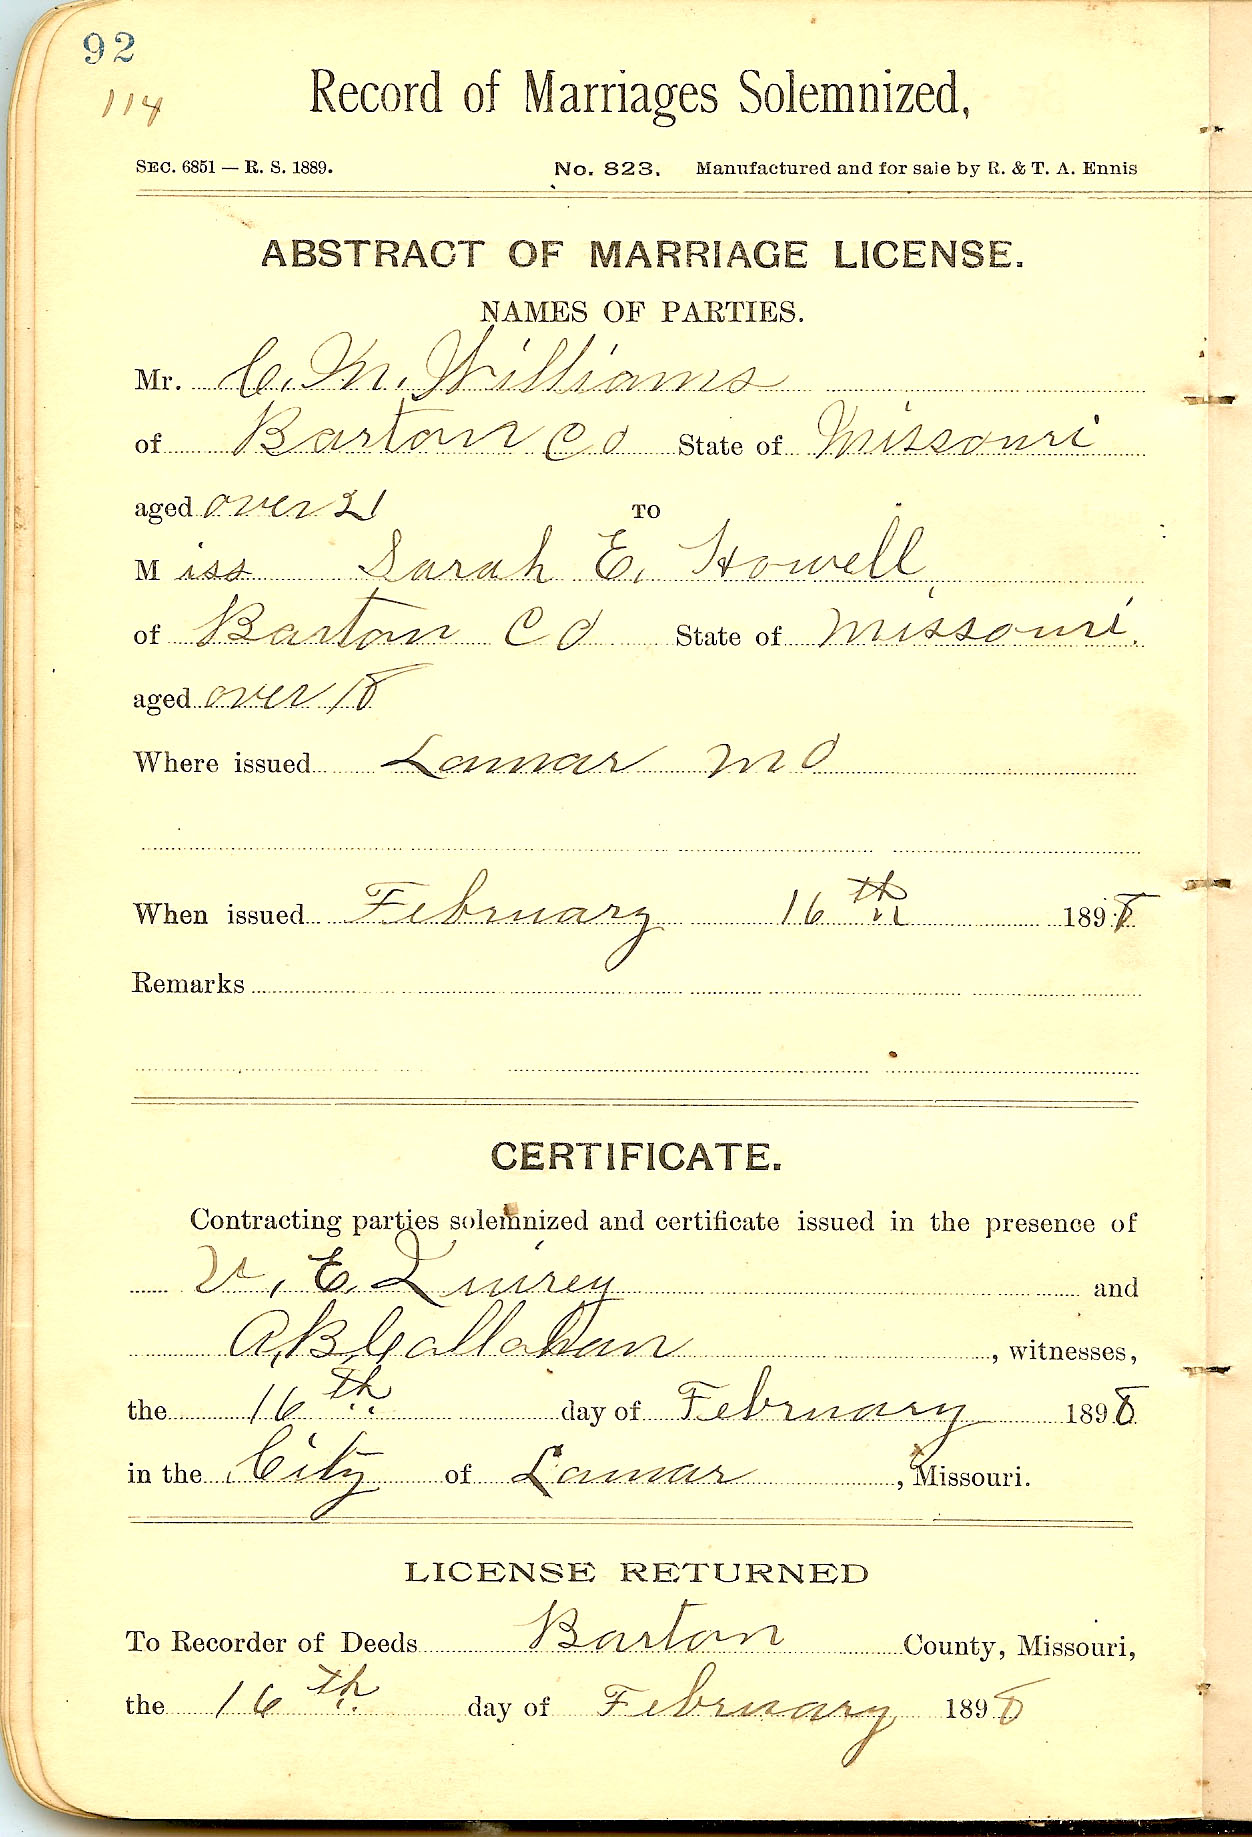 92
114
Record of Marriages Solemnized,
SEC. 6851 — R. S. 1889. No. 823. Manufactured and for sale by R. & T. A. Ennis
ABSTRACT OF MARRIAGE LICENSE.
NAMES OF PARTIES.
Mr. C. M. Williams
of Barton Co State of Missouri
aged over 21 TO
Miss Sarah E. Howell
of Barton Co State of Missouri.
aged over 18
Where issued Lamar Mo
When issued February 16th 1898
Remarks
CERTIFICATE.
Contracting parties solemnized and certificate issued in the presence of
V. E. and
A. B. Callahan, witnesses,
the 16th day of February 1898
in the City of Lamar, Missouri.
LICENSE RETURNED
To Recorder of Deeds Barton County, Missouri,
the 16th day of February 1898